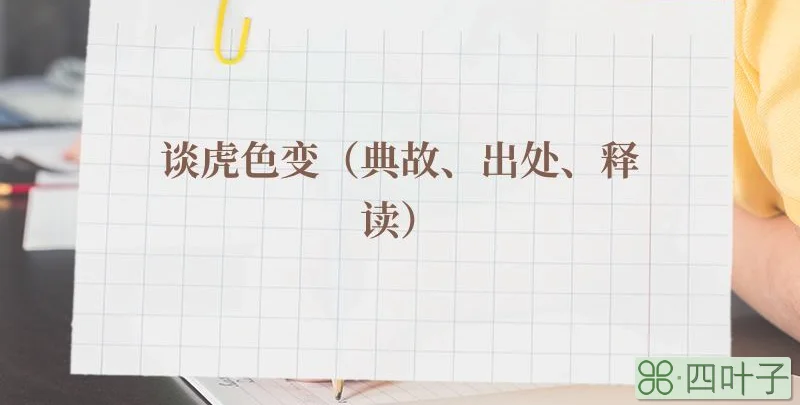 谈虎色变（典故、出处、释
读）
四叶子